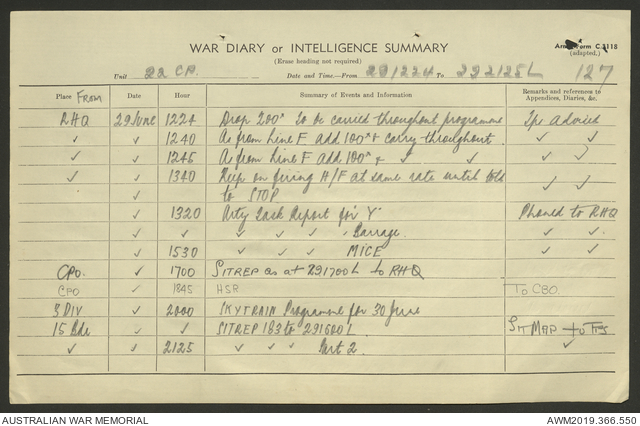 Army Form C.2118
WAR DIARY or INTELLIGENCE SUMMARY (adapted.)
(Erase heading not required)
Unit 22 CP. Date and Time.—From 291224 To 292125L 127
Place FROM Date Hour Summary of Events and Information Remarks and references to Appendices, Diaries, &c.
RHQ 29 June 1224 Drop 200ˣ to be carried throughout programme Tps Advised
✓ ✓ 1240 As from Line F add 100ˣ & carry throughout. ✓ ✓
✓ ✓ 1245 As from Line F add 100ˣ & ✓ ✓ ✓ ✓
✓ ✓ 1340 Keep on firing H/F at same rate until told
to STOP ✓ ✓
✓ 1320 Arty Task Report for "Y" Phoned to RHQ
✓ ✓ ✓ ✓ ✓ ✓ Barrage. ✓ ✓
✓ 1530 ✓ ✓ ✓ MICE ✓ ✓
CPO. ✓ 1700 SITREP as at 291700L to RHQ
CPO ✓ 1845 HSR To CBO.
3 DIV ✓ 2000 SKYTRAIN Programme for 30 June
15 Bde ✓ ✓ SITREP 163 to 291600L. SIT MAP
✓ ✓ 2125 ✓ ✓ Part 2. ✓
AUSTRALIAN WAR MEMORIAL AWM2019.366.550